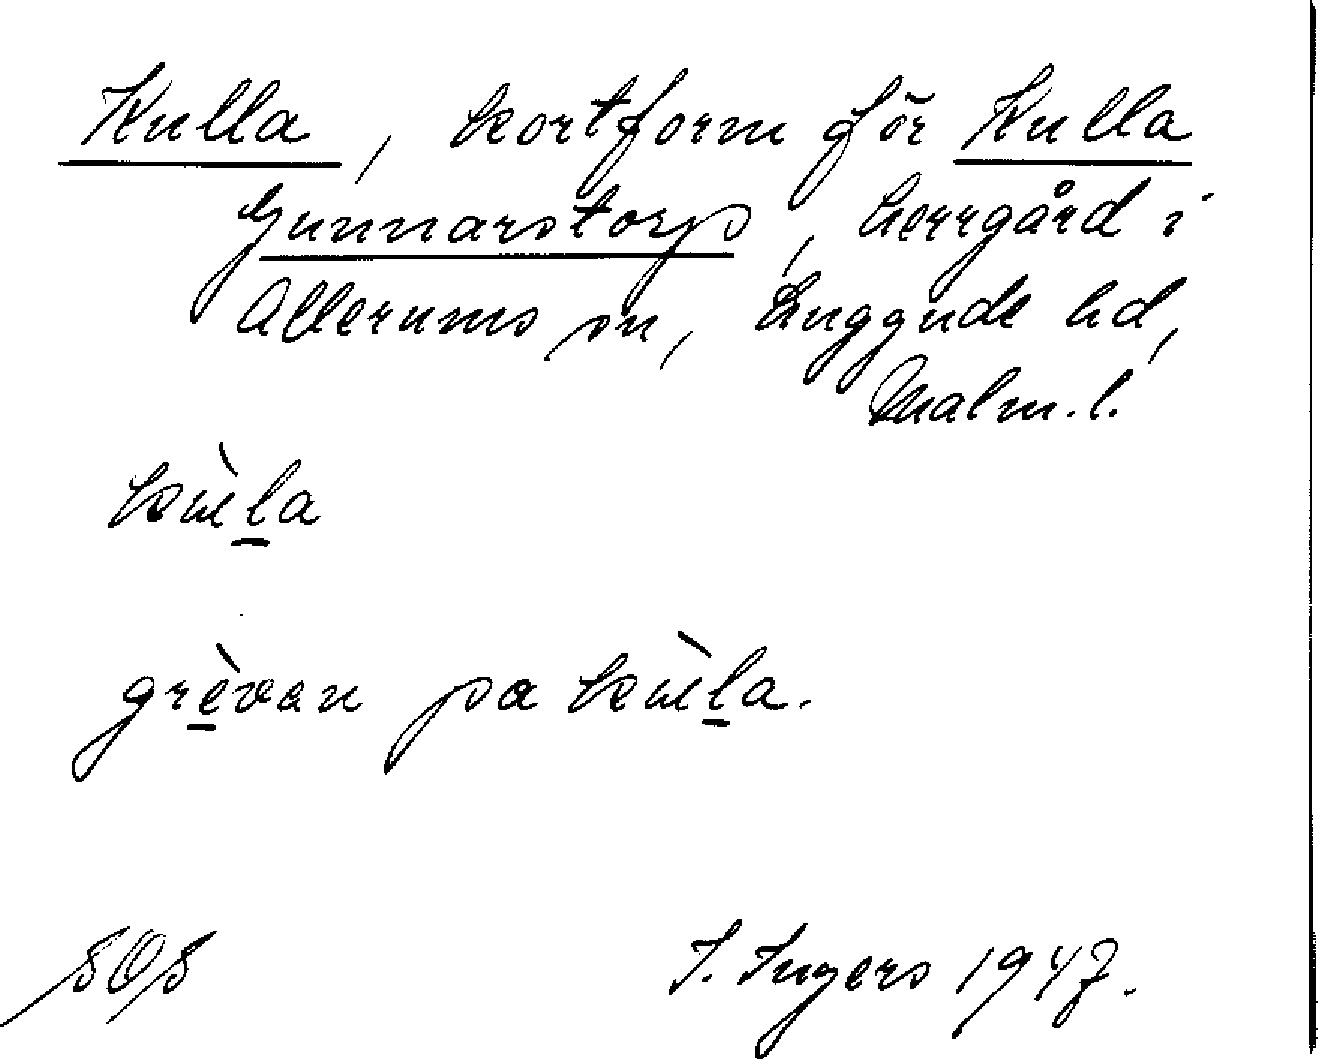 Kulla, kortform för Kulla
Gunnarstorp, herrgård i
Allerums sn, Luggude hd,
Malm. l.
kùla
grèvan pa kùla.
SOS
I. Ingers 1947.